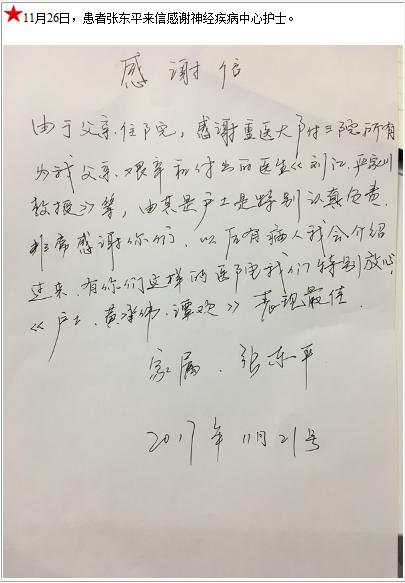 ★11月26日，患者张东平来信感谢神经疾病中心护士。
感谢信
由于父亲住院，感谢重医大附三院所有
为我父亲艰辛和付出的医生《刘江、平
教授》等，由其是户士是特别认真负责.
非常感谢你们，以后有病人我会介绍
过来，有你们这样的医院我们特别放心，
《户士、黄 伟、谭欢》表现最佳.
家属、张东平
2017年11月21号